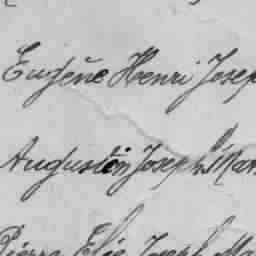 Eugène Henri Josep
Augustin Joseph Mar
Pierre Elie Joseph Ma